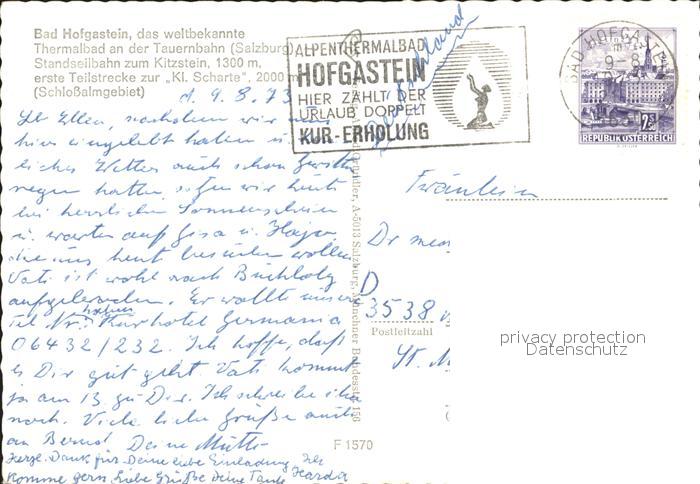 Bad Hofgastein, das weltbekannte
Thermalbad an der Tauernbahn (Salzburg)
Standseilbahn zum Kitzstein, 1300 m,
erste Teilstrecke zur „Kl. Scharte", 2000 m
(Schloßalmgebiet)
ALPENTHERMALBAD
HOFGASTEIN
HIER ZÄHLT DER
URLAUB DOPPELT
KUR-ERHOLUNG
BAD HOFGASTEIN
9-8
2 S
REPUBLIK ÖSTERREICH
d. 9.8.73
Lb Ellen, nachdem wir uns
hier eingelebt haben u.
liches Wetter auch schon Gewitter
regen hatten, sitzen wir heute
bei herrlichem Sonnenschein
u. warten auf Gisa u. Hajo
die uns heut besuchen wollen
Vati ist wohl nach Buchholz
aufgeladen. Er wollte unsere
Tel Nr. haben Kurhotel Germania
06432/232. Ich hoffe, daß
es Dir gut geht. Vati kommt
ja am 13. zu Dir. Ich schreibe ihm
noch. Viele liebe Grüße auch
an Bernd Deine Mutti
Herzl. Dank für Deine liebe Einladung. Ich
komme gern Liebe Grüße Deine Tante Harda
Fräulein
Dr med
D
3538
Postleitzahl
St. M
A-5013 Salzburg, Münchner Bundesstr. 156
F 1570
privacy protection
Datenschutz